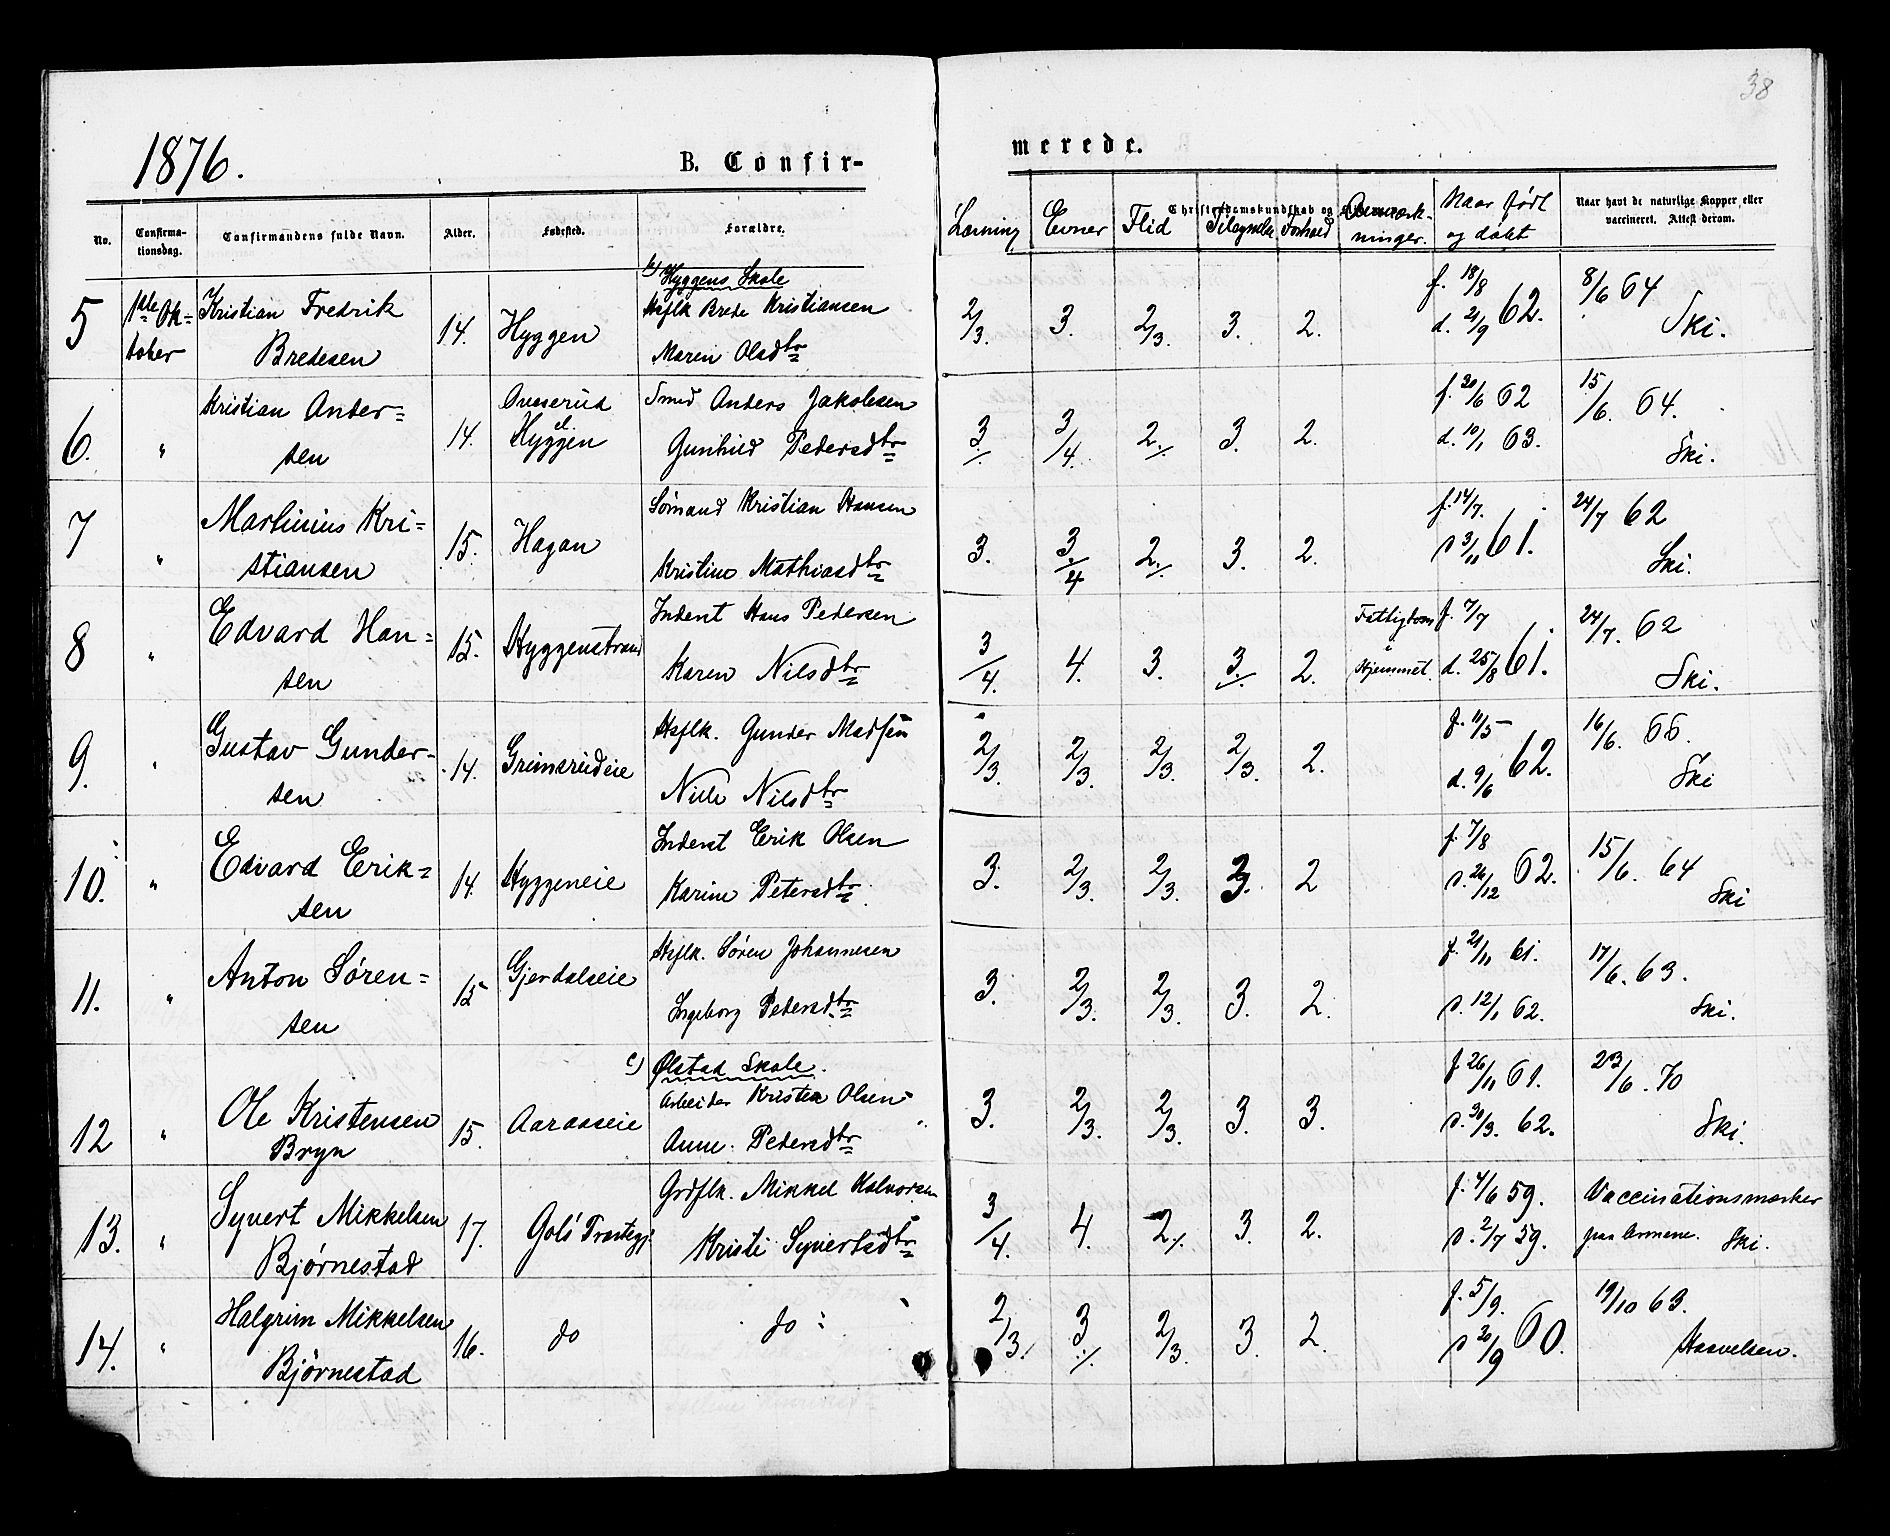 38
1876.
B. Confir-
merede.
No.
Confirma-
tionsdag.
Confirmandens fulde Navn.
Alder.
Fødested.
Forældre.
Læsning
Evner
Flid
Christendomskundskab og
Tilegnelse
Forhold
Anmærk-
ninger.
Naar født
og døbt
Naar havt de naturlige Kopper, eller
vaccineret. Attest derom.
b) Hyggens Skole
5 1ste Ok- Kristian Fredrik 14. Hyggen Hsflk Brede Kristiansen 2/3. 3. 2/3. 3. 2. f. 18/8 62. 8/6 64
tober Bredesen Maren Olsdtr d. 21/9 Ski.
6. " Kristian Ander= 14. Oveserud Smed Anders Jakobsen 3 3/4. 2. 3. 2. f. 20/6 62 15/6. 64.
sen el. Hyggen Gunhild Pedersdtr d. 10/1 63. Ski.
7 " Martinius Kri= 15. Hagan Sømand Kristian Hansen 3. 3/4 2. 3. 2. f. 14/7. 61. 24/7 62
stiansen Kristine Mathiasdtr d 3/11 Ski.
8 " Edvard Han= 15. Hyggenstrand Inderst Hans Pedersen 3/4. 4. 3. 3. 2. Fattigdom f. 7/7 61. 24/7. 62
sen Karen Nilsdtr i Hjemmet. d. 25/8 Ski.
9. " Gustav Gunder= 14. Grimsrudeie Hsflk. Gunder Madsen 2/3. 2/3. 2/3. 2/3. 2. f. 11/5 62. 16/6. 66.
sen Nilsdtr d. 9/6 Ski
10. " Edvard Erik= 14. Hyggeneie Inderst Erik Olsen 3. 2/3. 2/3. 3. 2 f. 7/8 62. 15/6. 64
sen Karine Petersdtr d. 26/12 Ski
11. " Anton Søren= 15 Gjerdalseie Hsflk. Søren Johannesen 3. 2/3. 2/3. 3. 2. f. 21/11 61. 17/6. 63.
sen Ingeborg Pedersdtr d. 12/1 62. Ski.
c) Ølstad Skole.
12 " Ole Kristensen 15. Aaraseie Arbeider Kristen Olsen 3. 2/3. 2/3. 3. 3. f. 26/11 61. 23/6. 70
Bryn Anne Pedersdtr d. 30/3. 62. Ski.
13. " Syvert Mikkelsen 17. Gols Præstegj. Grdflk. Mikkel Halvorsen 3/4. 4. 2. 3. 2. f. 4/6 59. Vaccinationsmærker
Bjørnestad Kristi Syvertsdtr d. 2/7 59. paa Armene. Ski.
14. " Halgrim Mikkelsen 16. do do 2/3. 3 2/3. 3. 2. f. 5/9. 60. 19/10 63.
Bjørnestad d 30/9 Hasvelsen.